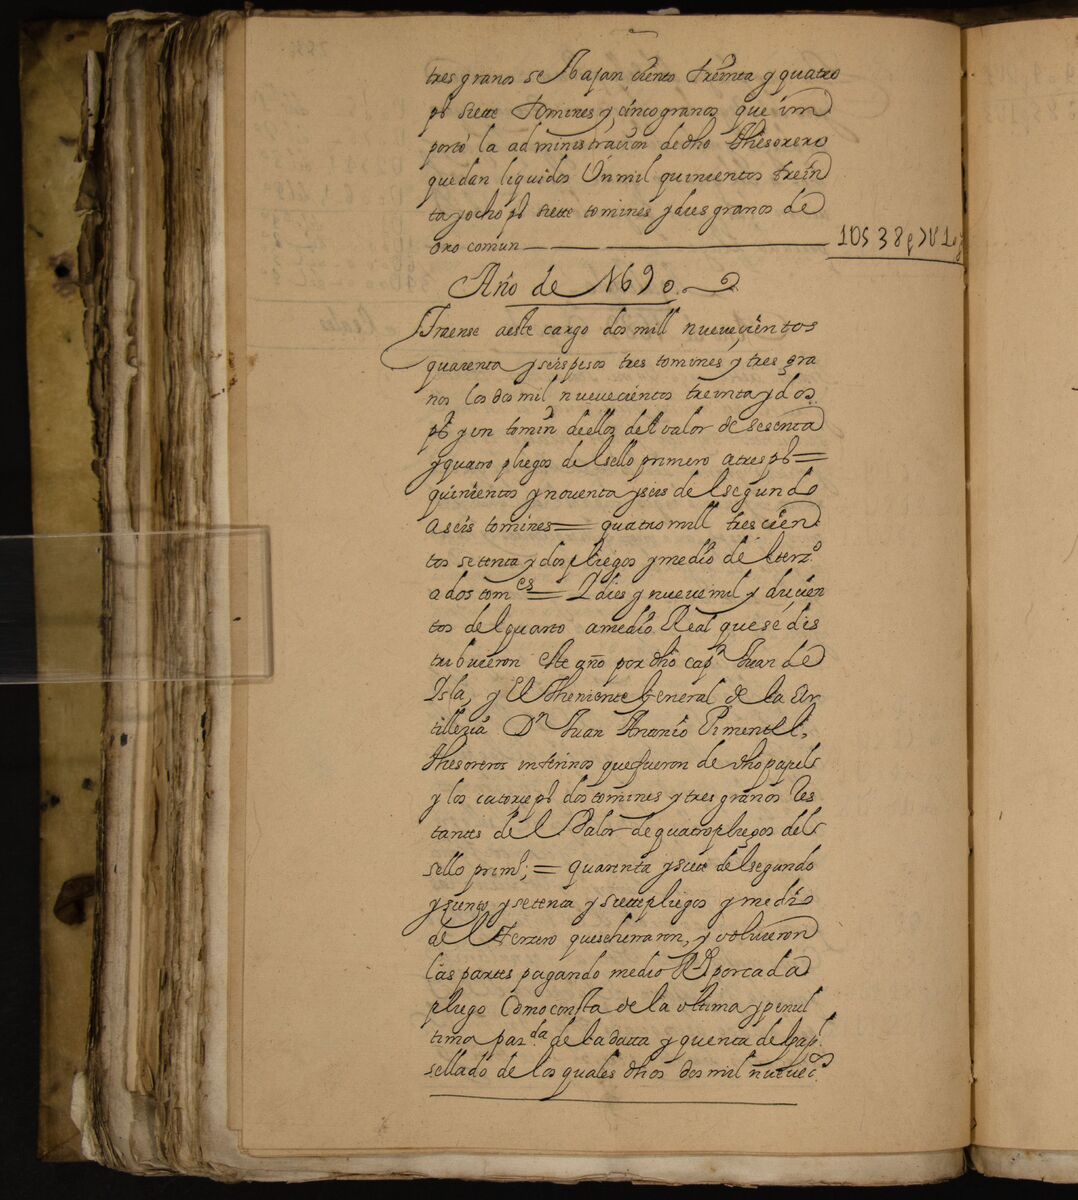 tres granos se bajan ciento treinta y quatro
ps siette tomines y cinco granos que im
portó la administración de dho thesorero
quedan liquidos Un mil quinientos trein
ta y ocho ps siette tomines y dies granos de
oro comun
Año de 1690.
Traense a este cargo dos mill nuevecientos
quarenta y seis pesos tres tomines y tres gra
nos los dos mil nuevecientos treinta y dos
ps y un tomin de ellos del valor de sesenta
y quatro pliegos del sello primero a tres ps =
quinientos y noventa y seis del segundo
a seis tomines = quatro mill trescien
tos setenta y dos pliegos y medio del terzo
a dos tomes = Y dies y nueve mil y ducien
tos del quarto a medio Real que se dis
tribuieron este año por dho capn Juan de
Isla, y El Theniente General de la Ar
tilleria Dn Juan Antonio Pimentel,
thesoreros interinos que fueron de dho papel
y los catorze ps dos tomines y tres granos res
tantes del valor de quatro pliegos del
sello primo; = quarenta y siete del segundo
y ziento y setenta y siette pliegos y medio
del Tercero que se herraron, y volvieron
las partes pagando medio Rl por cada
pliego Como consta de la ultima y penul
tima parda de la datta y quenta del papl
sellado de los quales dhos dos mil nuevecos